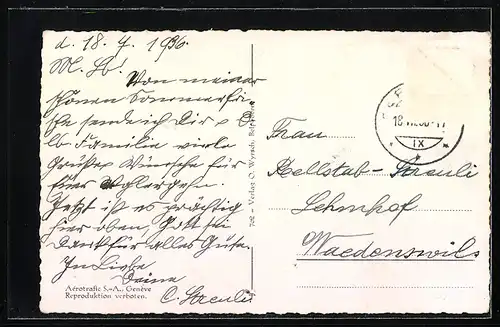 d. 18. 7. 1936.
M. Lb!
Von meiner
schönen Sommerfri-
sche sende ich Dir u. D.
lb Familie viele
Grüsse u. Wünsche für
Euer Wohlergehn.
Jetzt ist es prächtig
hier oben, Gott sei
Dank für alles Gute.
In Liebe
Deine
E. Streuli
Aérotrafic S.-A., Genève
Reproduktion verboten.
Verlag O. Wyrsch,
18
IX
Frau
Rellstab-Streuli
Lehmhof
Waedenswil